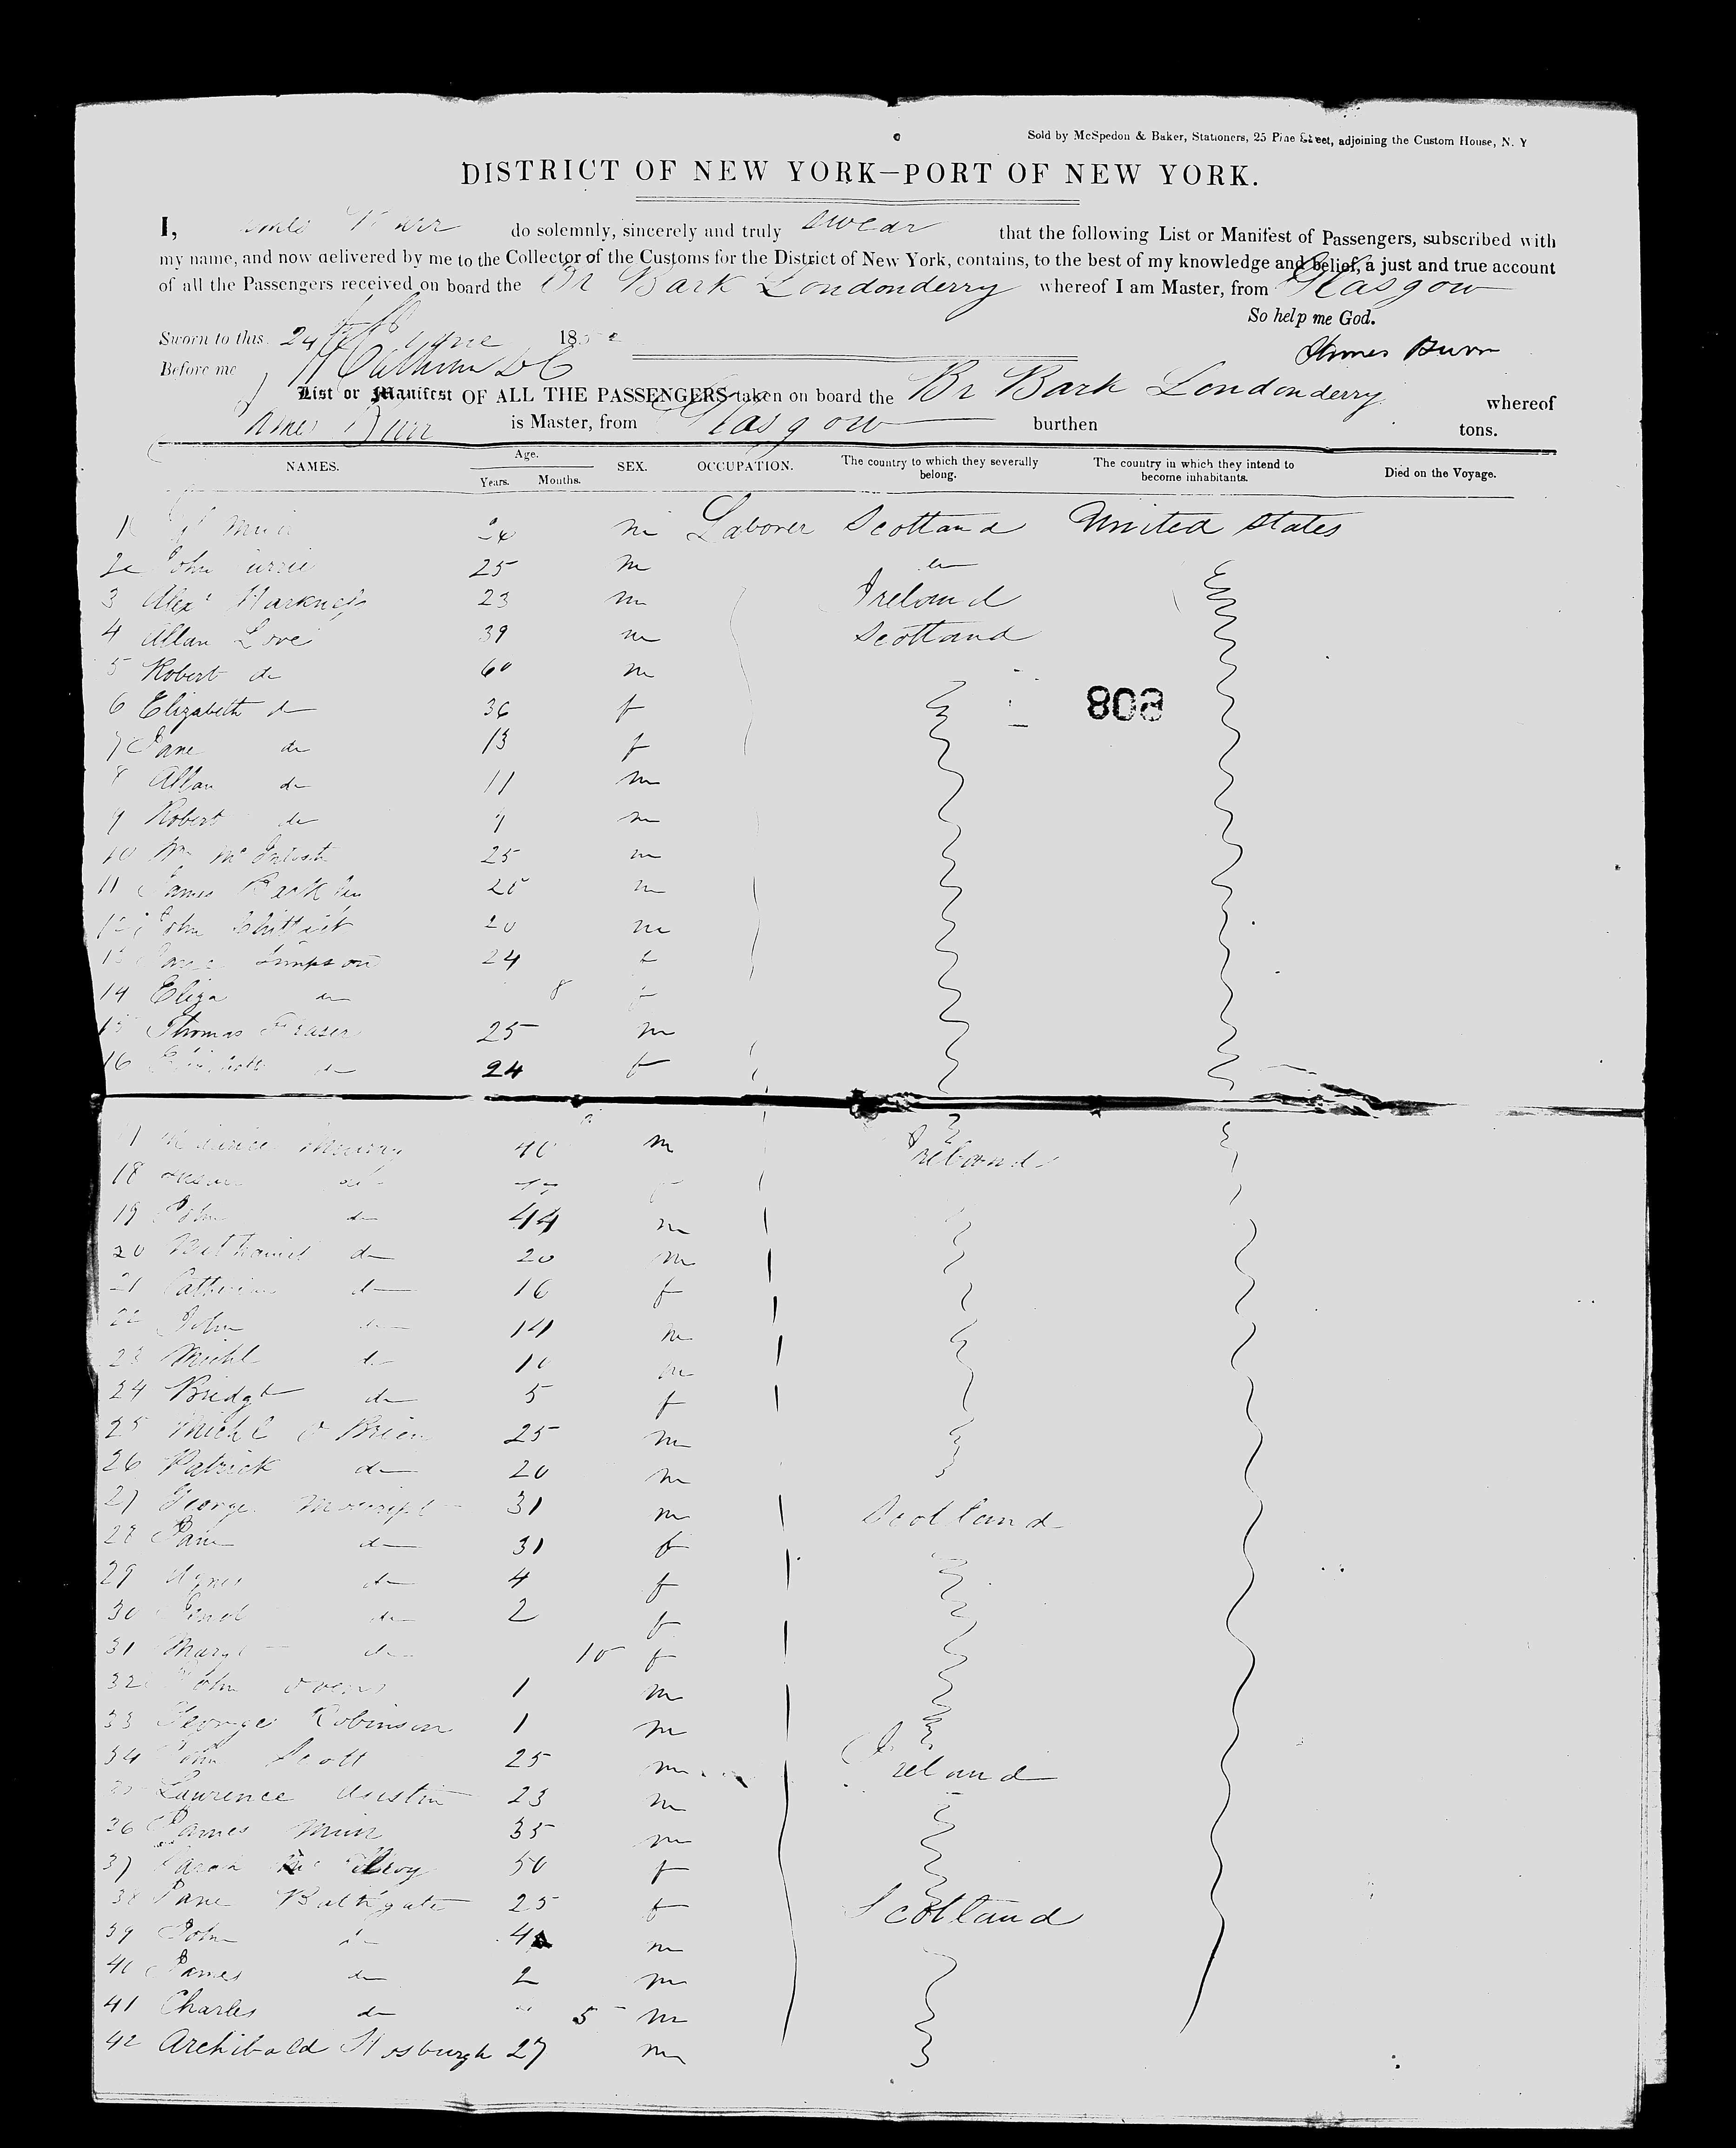 Sold by McSpedon & Baker, Stationers, 25 Pine Street, adjoining the Custom House, N. Y
DISTRICT OF NEW YORK—PORT OF NEW YORK.
I, do solemnly, sincerely and truly swear that the following List or Manifest of Passengers, subscribed with
my name, and now delivered by me to the Collector of the Customs for the District of New York, contains, to the best of my knowledge and belief, a just and true account
of all the Passengers received on board the Br Bark Londonderry whereof I am Master, from Glasgow
So help me God.
Sworn to this 24th June 185
James Burr
Before me
List or Manifest OF ALL THE PASSENGERS taken on board the Br Bark Londonderry whereof
James Burr is Master, from Glasgow burthen tons.
NAMES. Age. Years. Months. SEX. OCCUPATION. The country to which they severally belong. The country in which they intend to become inhabitants. Died on the Voyage.
1 Muir m Laborer Scotland United States
2 John 25 m do
3 Alexr Harkness 23 m Ireland
4 Allan Love 39 m Scotland
5 Robert do 60 m
6 Elizabeth do 36 f
808
7 Jane do 13 f
8 Allan do 11 m
9 Robert do 9 m
10 Wm McIntosh 25 m
11 James m
12 John 20 m
13 Simpson 24 f
14 Eliza do 8 f
15 Thomas Fraser 25 m
16 do 24 f
17 Murray 40 m Ireland
18 do
19 John do 44 m
20 Nathaniel do 20 m
21 Catherine do 16 f
22 John do 14 m
23 Michl do 10 m
24 Bridgt do 5 f
25 Michl O Brien 25 m
26 Patrick do 20 m
27 George 31 m Scotland
28 Jane do 31 f
29 Agnes do 4 f
30 do 2 f
31 Margt do 10 f
32 John Owens 1 m
33 George Robinson 1 m
34 John Scott 25 m Ireland
35 Lawrence Austin 23 m
36 James Muir 35 m
37 Sarah McIlroy 50 f
38 Jane Bathgate 25 f Scotland
39 John do 4 m
40 James do 2 m
41 Charles do " 5 m
42 Archibald Hosburgh 27 m